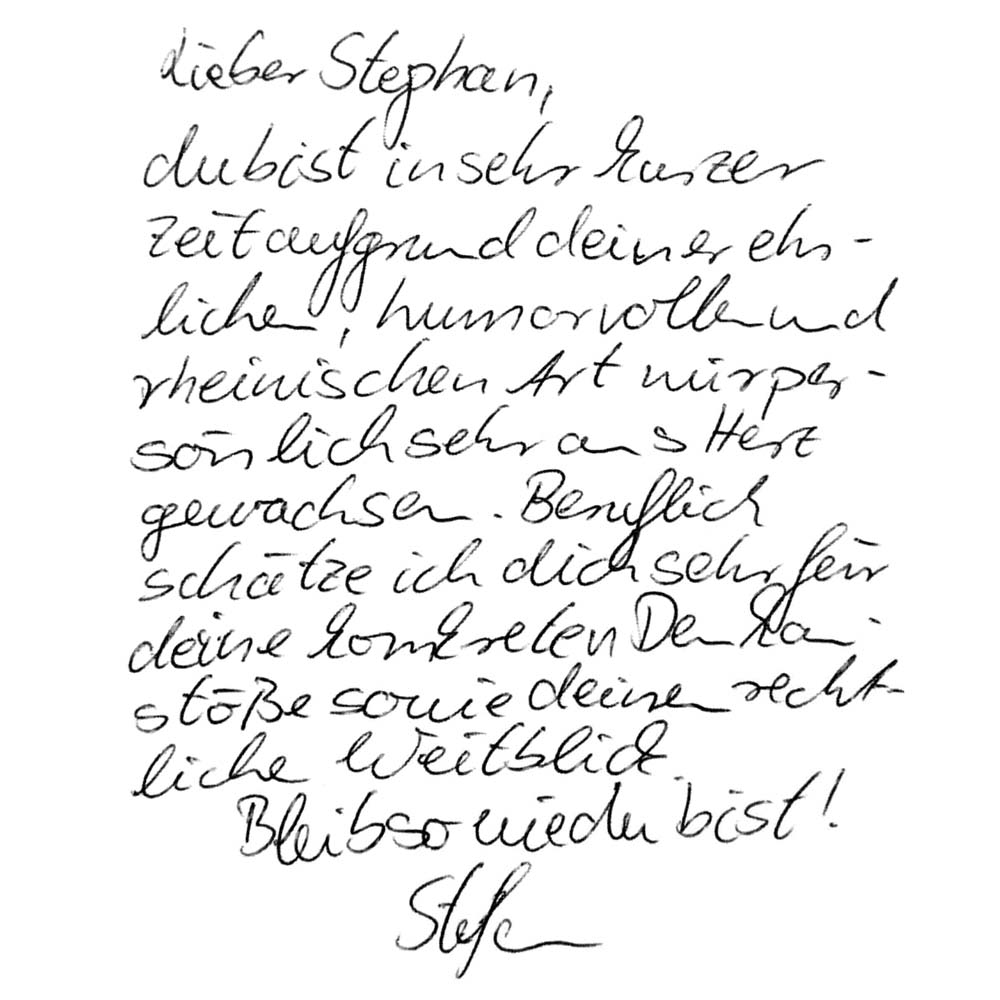 Lieber Stephan,
du bist in sehr kurzer
Zeit aufgrund deiner ehr-
lichen, humorvollen und
rheinischen Art mir per-
sönlich sehr ans Herz
gewachsen. Beruflich
schätze ich dich sehr für
deine konkreten Denkan-
stöße sowie deinen recht-
lichen Weitblick.
Bleib so wie du bist!
Stefan